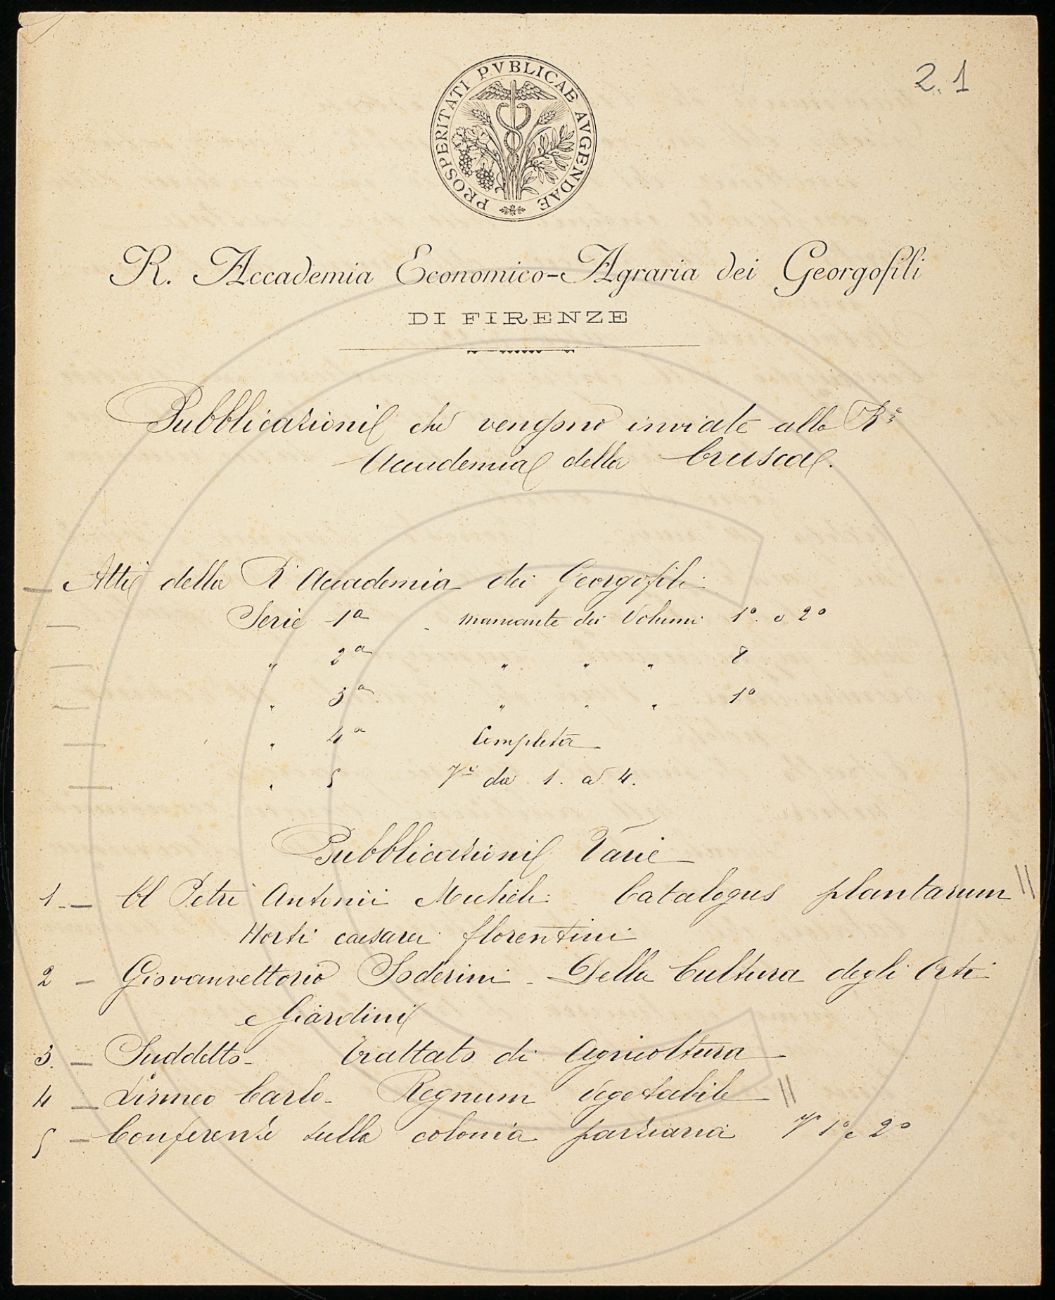 2.1
PROSPERITATI PVBLICAE AVGENDAE
R. Accademia Economico-Agraria dei Georgofili
DI FIRENZE
Pubblicazioni che vengono inviate alla R.
Accademia della Crusca.
Atti della R Accademia dei Georgofili
Serie 1a mancante dei Volumi 1° e 2°
" 2a " " " 8
" 3a " " " 1°
" 4a Completa
" 5 da 1. a 4.
Pubblicazioni Varie
1. Cl Petri Antonii Michieli Catalogus plantarum
Horti caesarei florentini
2 - Giovanvettorio Soderini - Della Cultura degli Orti
e Giardini
3. - Suddetto - Trattato di Agricoltura
4 - Linneo Carlo - Regnum vegetabile
5 - Conferenze sulla colonia parziaria 1° e 2°